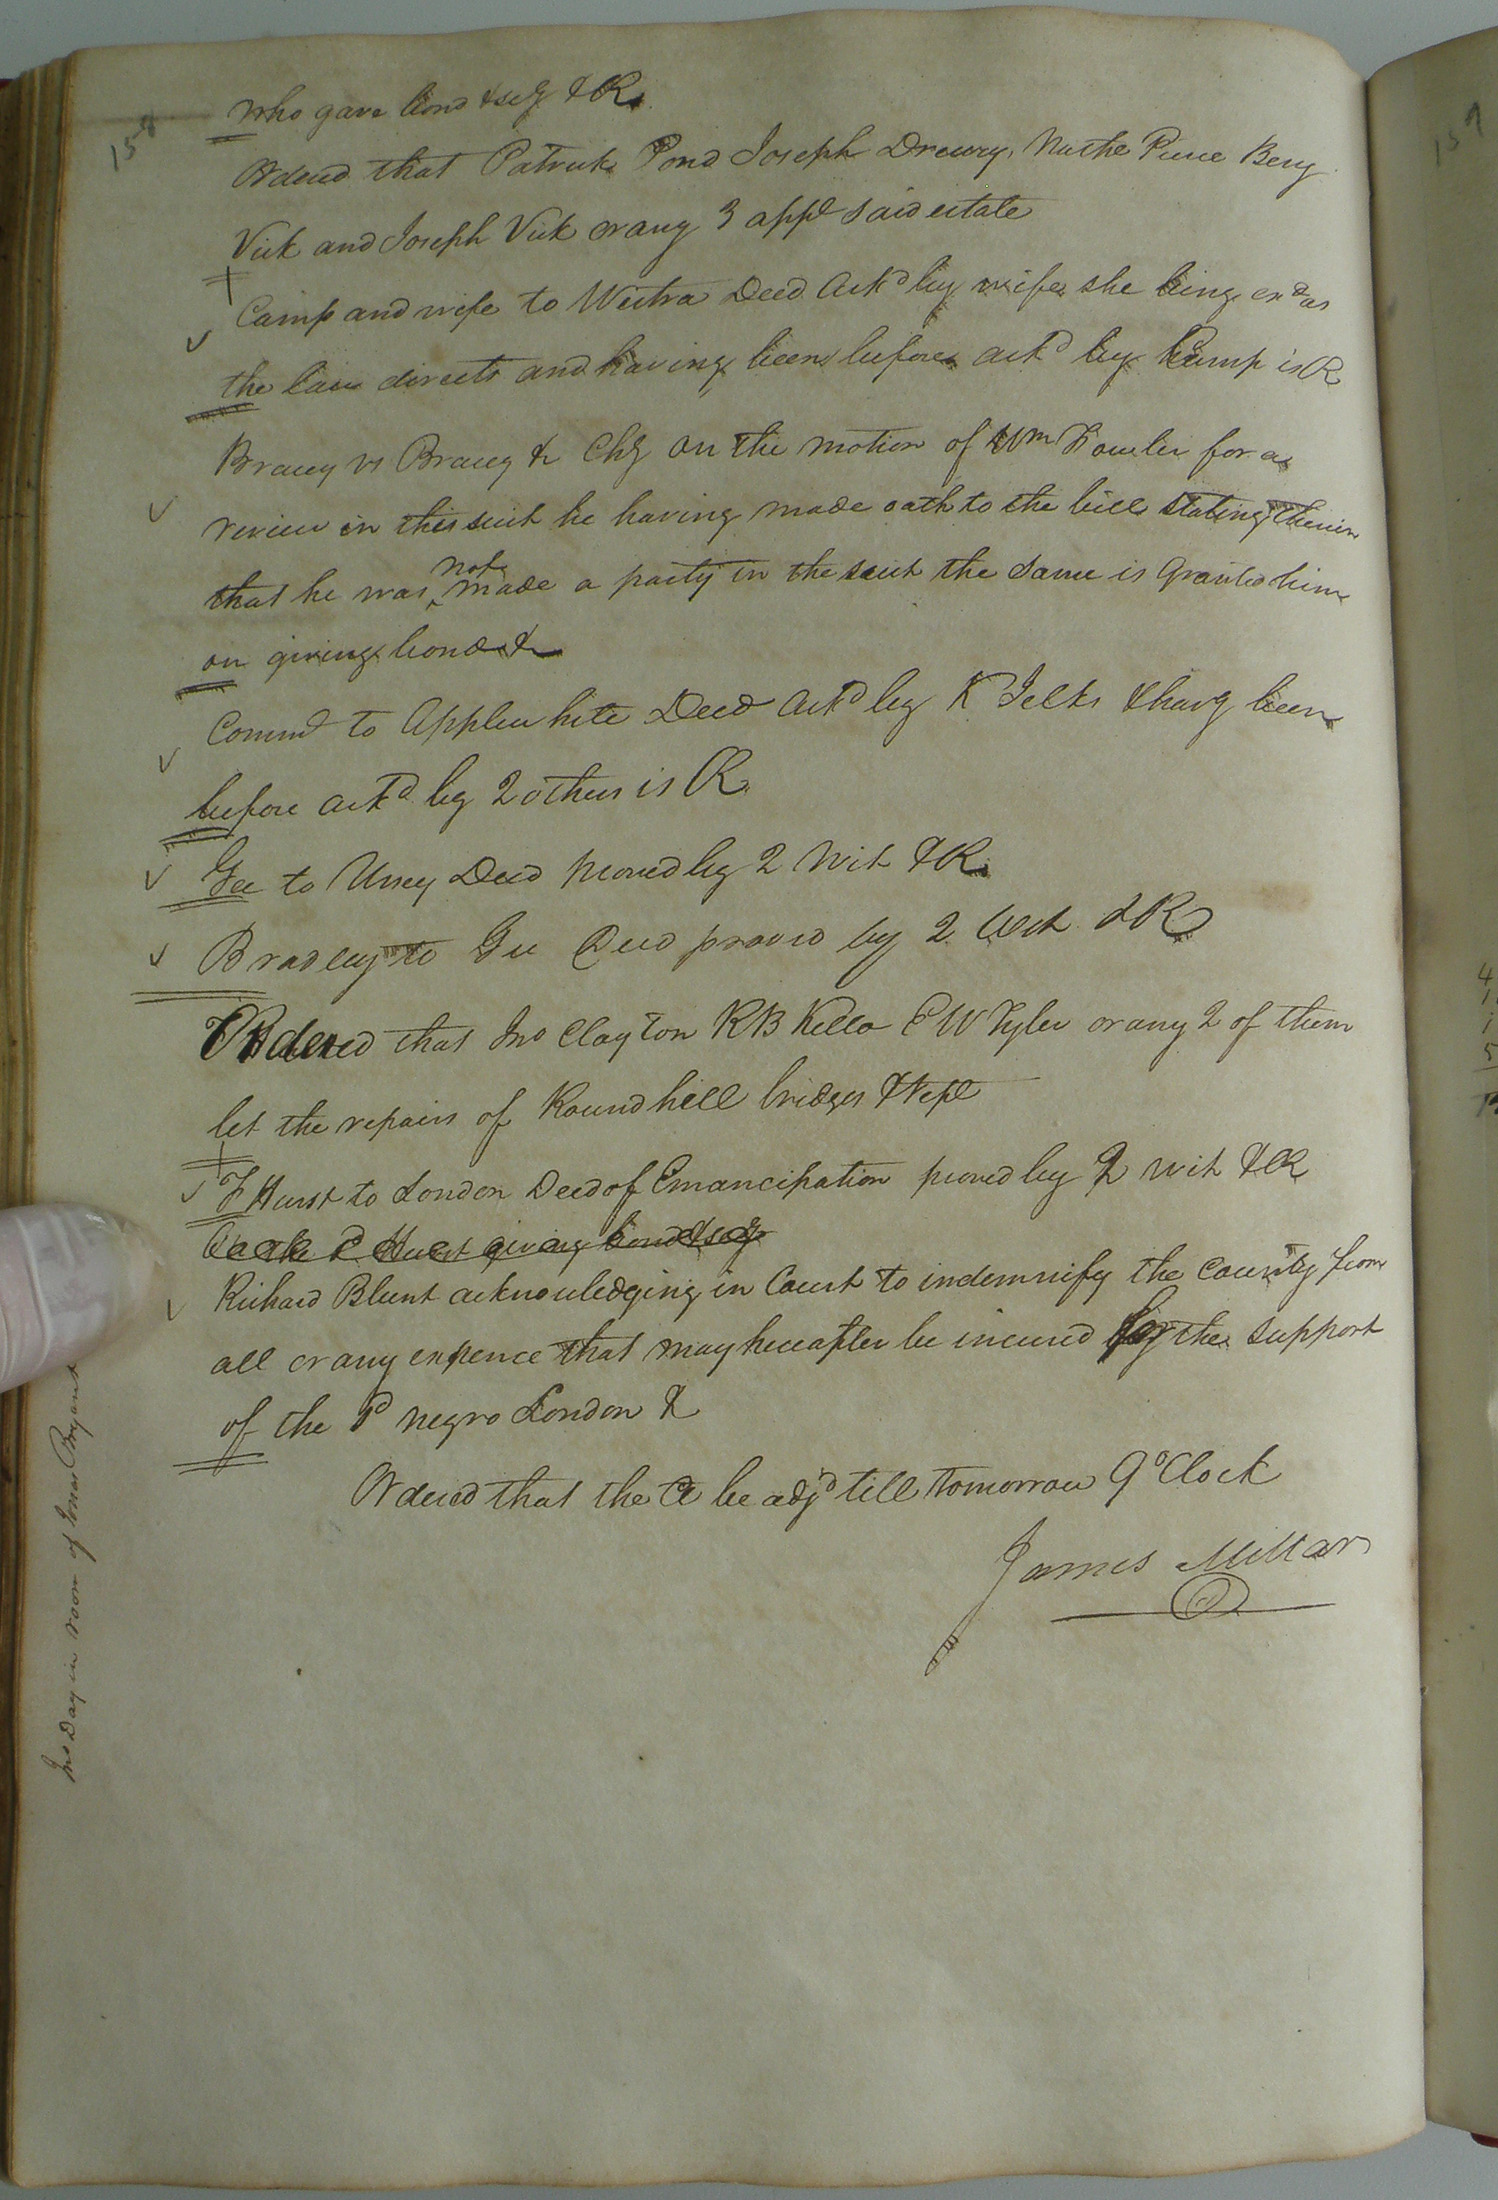 158
who gave bond & secy & R
Ordered that Patrick Pond Joseph Drewry, Nathl Pierce Benj
Vick and Joseph Vick or any 3 appr said estate
Camp and wife to Deed Ackd by wife she being exd as
the law directs and having been before ackd by Kamp is R
Bracey vs Bracey & Chy on the motion of Wm Fowler for a
review in this suit he having made oath to the bill stating therein
that he was not made a party in the suit the same is Granted him
on giving bond &
Commd to Applewhite Deed Ackd by K Jelks & havg been
before ackd by 2 others is R
Gee to Urvey Deed proved by 2 Wit & R
Bradley to Gee Deed proved by 2 Wit & R
Ordered that Jno Clayton RB Kello E W Tyler or any 2 of them
let the repairs of Round hill bridges & Rept
F Hurst to London Deed of Emancipation proved by 2 wit & R
Hurst giving bond & secy
Richard Blunt acknowledging in Court to indemnify the County from
all or any expence that may hereafter be incured for the support
of the sd negro London &
Ordered that the Ct be adjd till tomorrow 9 oClock
James Millar
Jno Day in room of Jonas Bryant
159